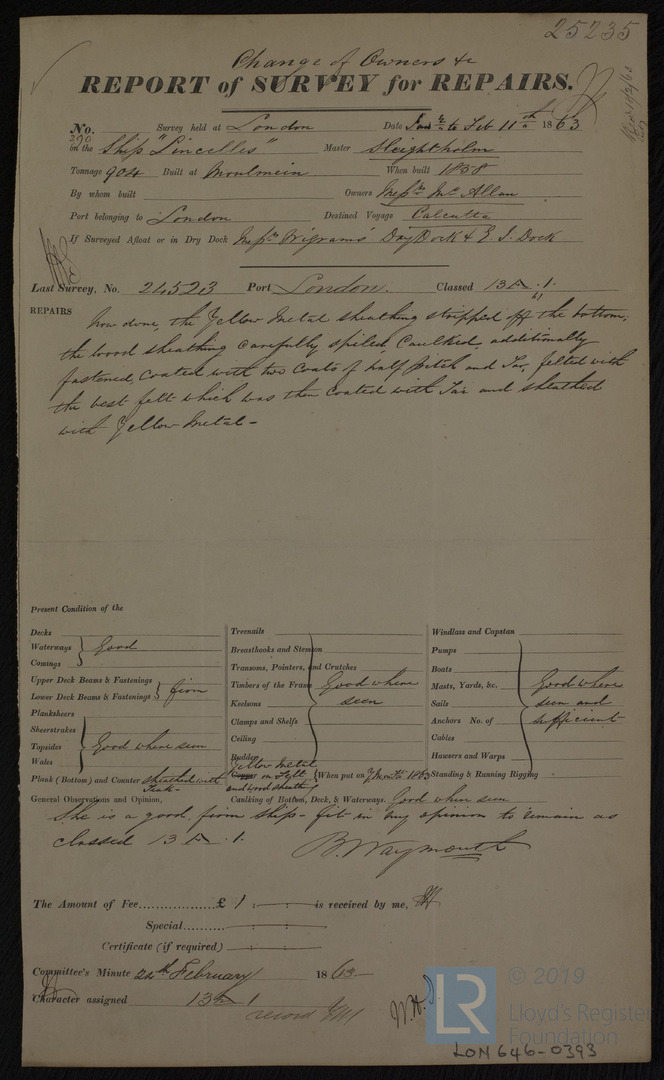 25235
Change of Owners &c
REPORT of SURVEY for REPAIRS.
No. 290 Survey held at London Date to Feb 11th 1863
on the Ship "Lincelles" Master Sleightholm
Tonnage 904 Built at Moulmein When built 1858
By whom built Owners Messrs Mc Allan
Port belonging to London Destined Voyage Calcutta
If Surveyed Afloat or in Dry Dock Messrs Wigrams' Dry Dock & E. I. Dock
Last Survey, No. 24523 Port London. Classed 13 A .1. 61
REPAIRS Now done, the Yellow Metal sheathing stripped off the bottom,
the wood sheathing carefully spiled, caulked, additionally
fastened, coated with two coats of half pitch and Tar, felted with
the best felt which was then coated with Tar and sheathed
with Yellow Metal-
Present Condition of the
Decks
Waterways
Comings
Good
Upper Deck Beams & Fastenings
Lower Deck Beams & Fastenings
firm
Planksheers
Sheerstrakes
Topsides
Wales
Good where seen
Plank (Bottom) and Counter sheathed with Teak-
Treenails
Breasthooks and Stemson
Transoms, Pointers, and Crutches
Timbers of the Frame
Keelsons
Clamps and Shelfs
Ceiling
Rudder
Good where seen
Yellow Metal on Felt and wood sheathg When put on 1863
Windlass and Capstan
Pumps
Boats
Masts, Yards, &c.
Sails
Anchors No. of
Cables
Hawsers and Warps
Standing & Running Rigging
Good where seen and sufficient
General Observations and Opinion, Caulking of Bottom, Deck, & Waterways. Good where seen
She is a good firm ship- fit in my opinion to remain as
classed 13 A .1.
B. Waymouth
The Amount of Fee £ 1 : - : - is received by me,
Special
Certificate (if required)
Committee's Minute 24th February 1863
Character assigned 13 A 1
record YM
© 2019
LR
Lloyd's Register
Foundation
LON 646-0393